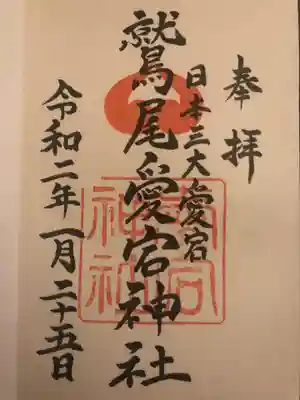 奉拝
日本三大愛宕
鷲尾愛宕神社
愛宕神社
令和二年一月二十五日